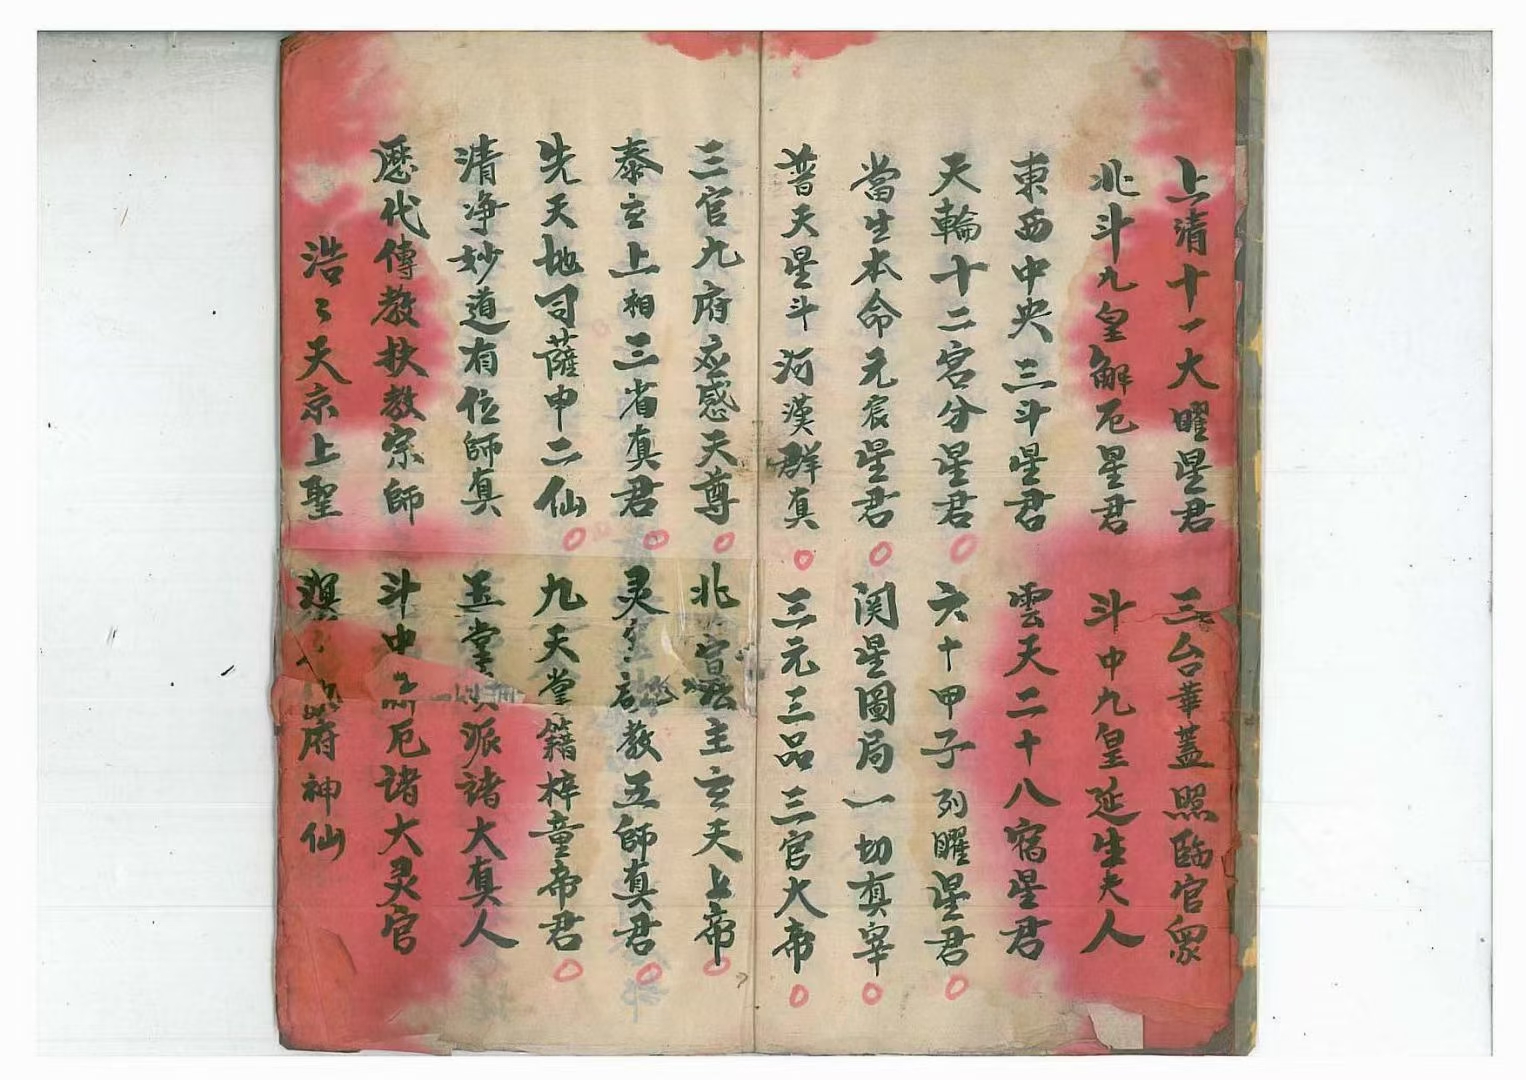 上清十一大曜星君 三台華蓋照臨官衆
北斗九皇解厄星君 斗中九皇延生夫人
東西中央三斗星君 雲天二十八宿星君
天輪十二宮分星君 六十甲子列曜星君
當生本命元辰星君 関星圖局一切真宰
普天星斗河漢群真 三元三品三官大帝
三官九府应感天尊 北宫法主玄天上帝
泰玄上相三省真君 灵宝啟教五師真君
先天地司薩申二仙 九天掌籍梓童帝君
清净妙道有位師真 玉堂派諸大真人
歷代傳教扶教宗師 斗中厄諸大灵官
浩〻天京上聖 府神仙